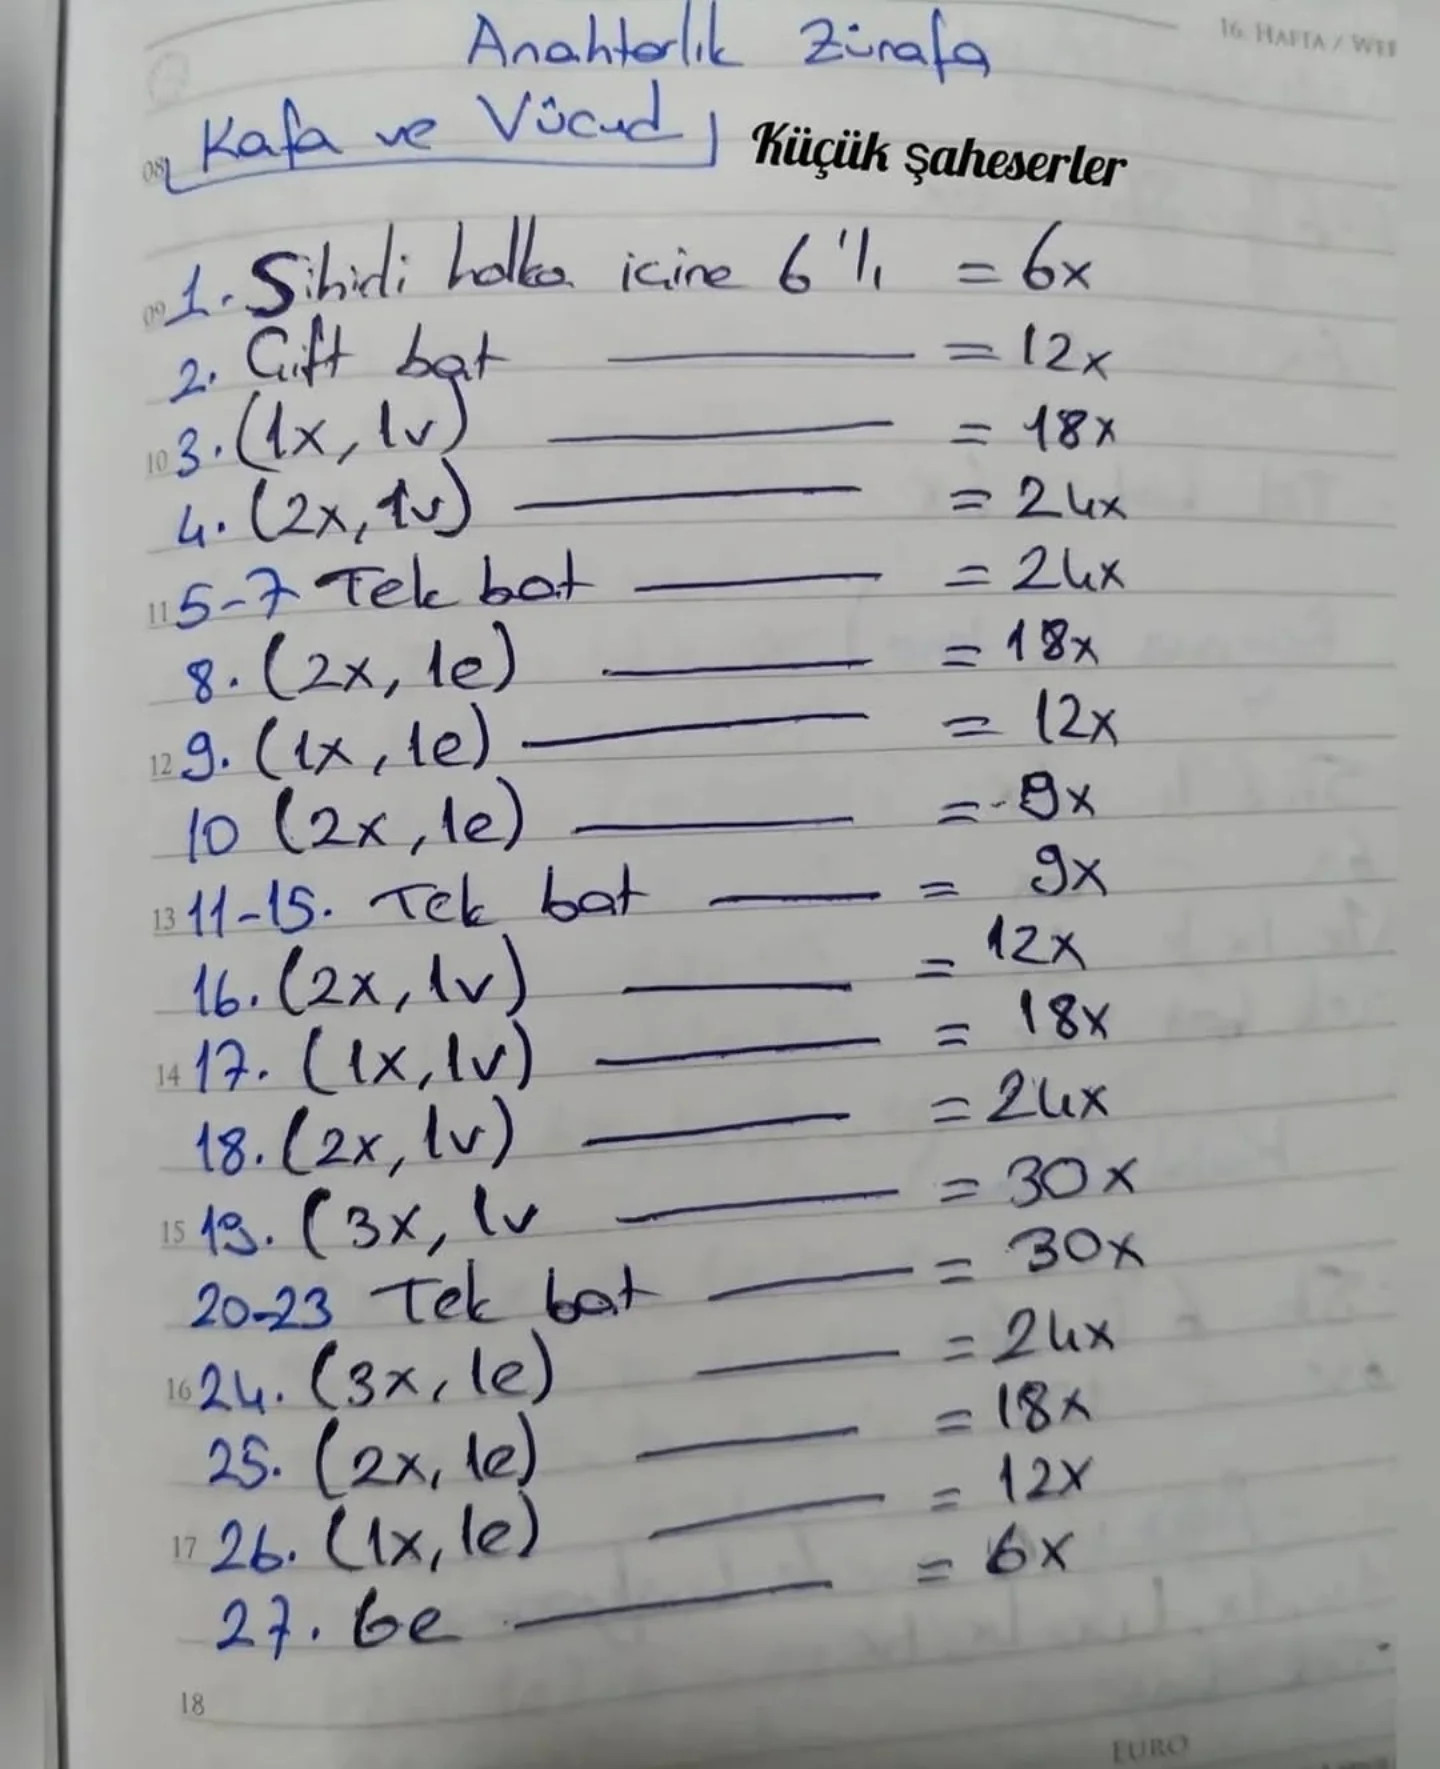 16. HAFTA / WEE
Anahtarlık Zürafa
08 Kafa ve Vücud Küçük şaheserler
09 1. Sihirli halka içine 6'lı = 6x
2. Çift bat = 12x
10 3. (1x, 1v) = 18x
4. (2x, 1v) = 24x
11 5-7 Tek bat = 24x
8. (2x, 1e) = 18x
12 9. (1x, 1e) = 12x
10 (2x, 1e) = 9x
13 11-15. Tek bat = 9x
16. (2x, 1v) = 12x
14 17. (1x, 1v) = 18x
18. (2x, 1v) = 24x
15 19. (3x, 1v = 30x
20-23 Tek bat = 30x
16 24. (3x, 1e) = 24x
25. (2x, 1e) = 18x
17 26. (1x, 1e) = 12x
27. 6e = 6x
18
EURO